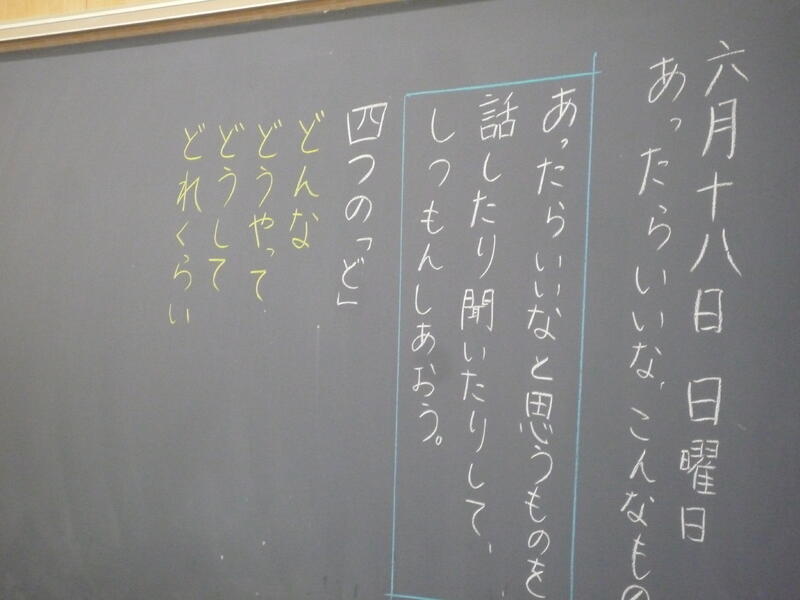 六月十八日 日曜日
あったらいいな、こんなもの
あったらいいなと思うものを
話したり聞いたりして、
しつもんしあおう。
四つの「ど」
どんな
どうやって
どうして
どれくらい